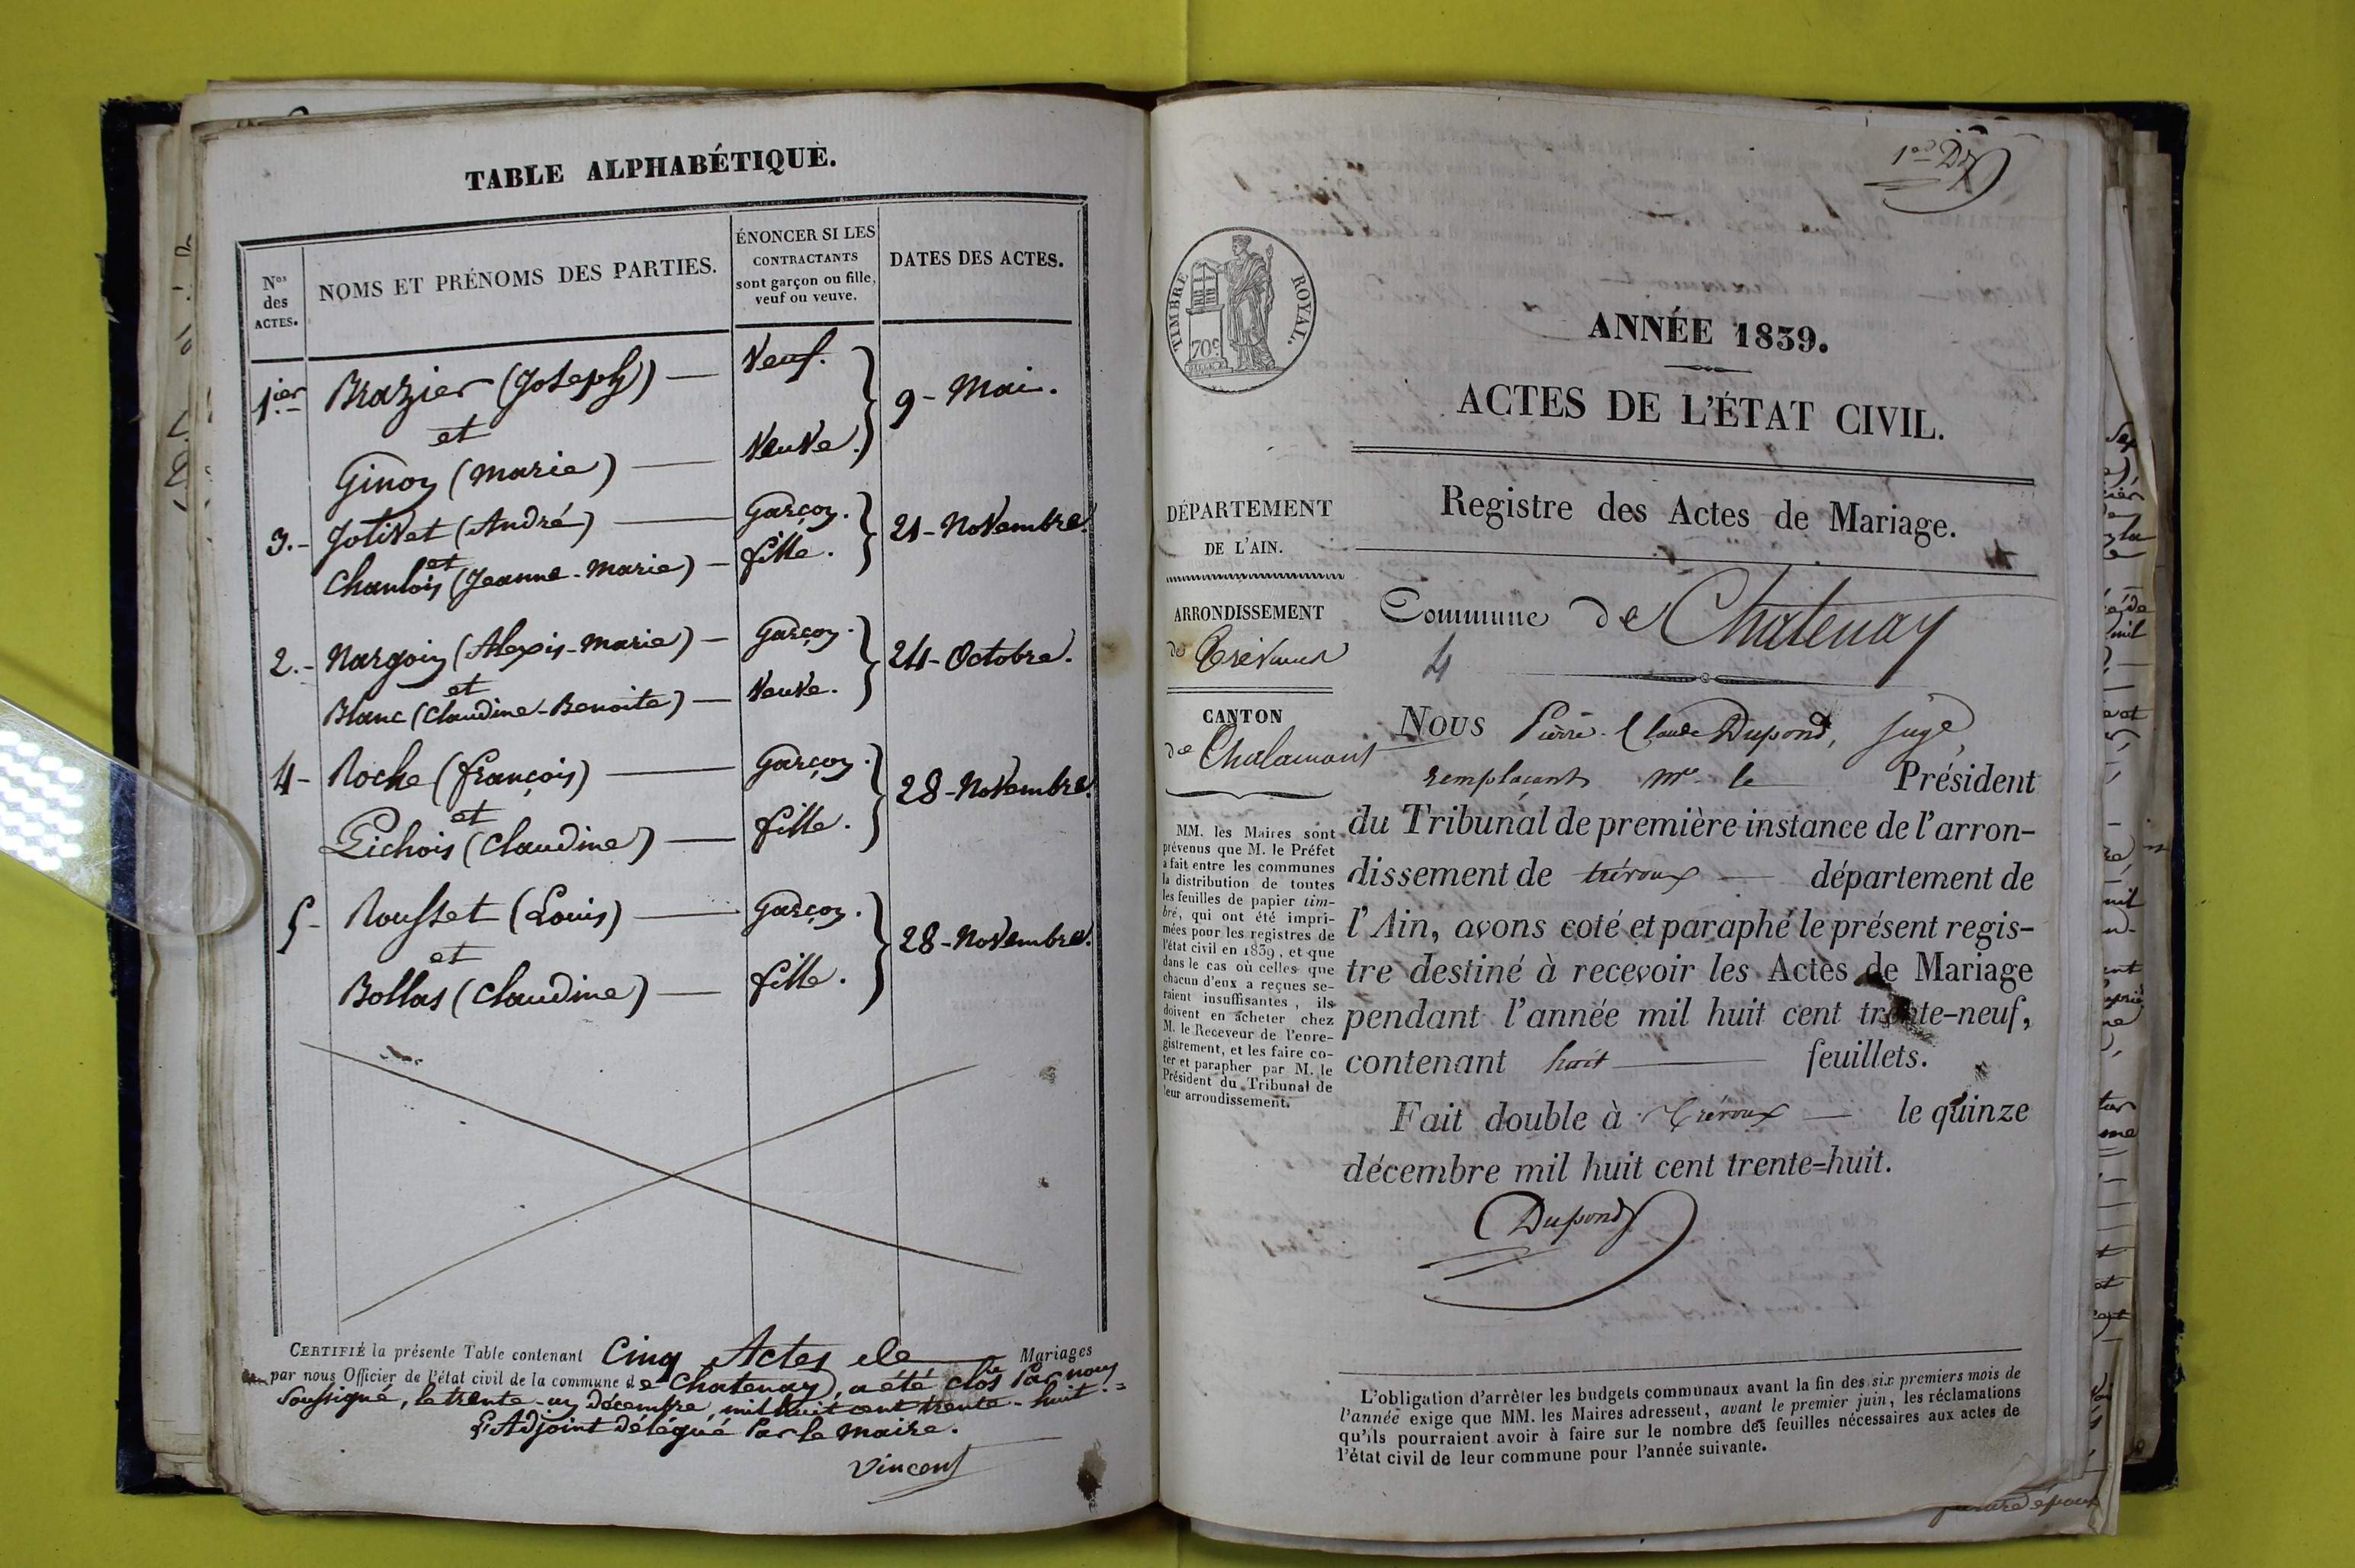 TABLE ALPHABÉTIQUE.
Nos
des
ACTES.
NOMS ET PRÉNOMS DES PARTIES.
ÉNONCER SI LES
CONTRACTANTS
sont garçon ou fille,
veuf ou veuve.
DATES DES ACTES.
1ier Brazier (Joseph) — Veuf.
et
9 - Mai.
Ginon (Marie) — Veuve.
3. - Jolivet (André) — Garçon.
et
21 - Novembre.
(Jeanne-Marie) — fille.
2. - Nargoin (Alexis-Marie) — Garçon.
et
24 - Octobre.
Blanc (Claudine-Benoite) — Veuve.
4 - Roche (françois) — Garçon.
et
28 - Novembre.
Pichois (Claudine) — fille.
5 - Rousset (Louis) — Garçon.
et
28 - Novembre.
Bollas (Claudine) — fille.
CERTIFIÉ la présente Table contenant Cinq Actes de Mariages
par nous Officier de l'état civil de la commune de Chatenay, a été clos Par nous
Soussigné, le trente-un Décembre, mil huit cent trente-huit.
L'Adjoint Délégué Par le Maire.
Vincent
1er
TIMBRE ROYAL.
70c
ANNÉE 1839.
ACTES DE L'ÉTAT CIVIL.
Registre des Actes de Mariage.
DÉPARTEMENT
DE L'AIN.
ARRONDISSEMENT
de Trévoux
CANTON
de Chalamont
MM. les Maires sont
prévenus que M. le Préfet
a fait entre les communes
la distribution de toutes
les feuilles de papier tim-
bré, qui ont été impri-
mées pour les registres de
l'état civil en 1839, et que
dans le cas où celles que
chacun d'eux a reçues se-
raient insuffisantes, ils
doivent en acheter chez
M. le Receveur de l'enre-
gistrement, et les faire co-
ter et parapher par M. le
Président du Tribunal de
leur arrondissement.
Commune de Chatenay
4
Nous Pierre Claude Dupond, juge,
remplaçant Mr le Président
du Tribunal de première instance de l'arron-
dissement de trévoux — département de
l'Ain, avons coté et paraphé le présent regis-
tre destiné à recevoir les Actes de Mariage
pendant l'année mil huit cent trente-neuf,
contenant huit — feuillets.
Fait double à Trévoux — le quinze
décembre mil huit cent trente-huit.
Dupond
L'obligation d'arrêter les budgets communaux avant la fin des six premiers mois de
l'année exige que MM. les Maires adressent, avant le premier juin, les réclamations
qu'ils pourraient avoir à faire sur le nombre des feuilles nécessaires aux actes de
l'état civil de leur commune pour l'année suivante.